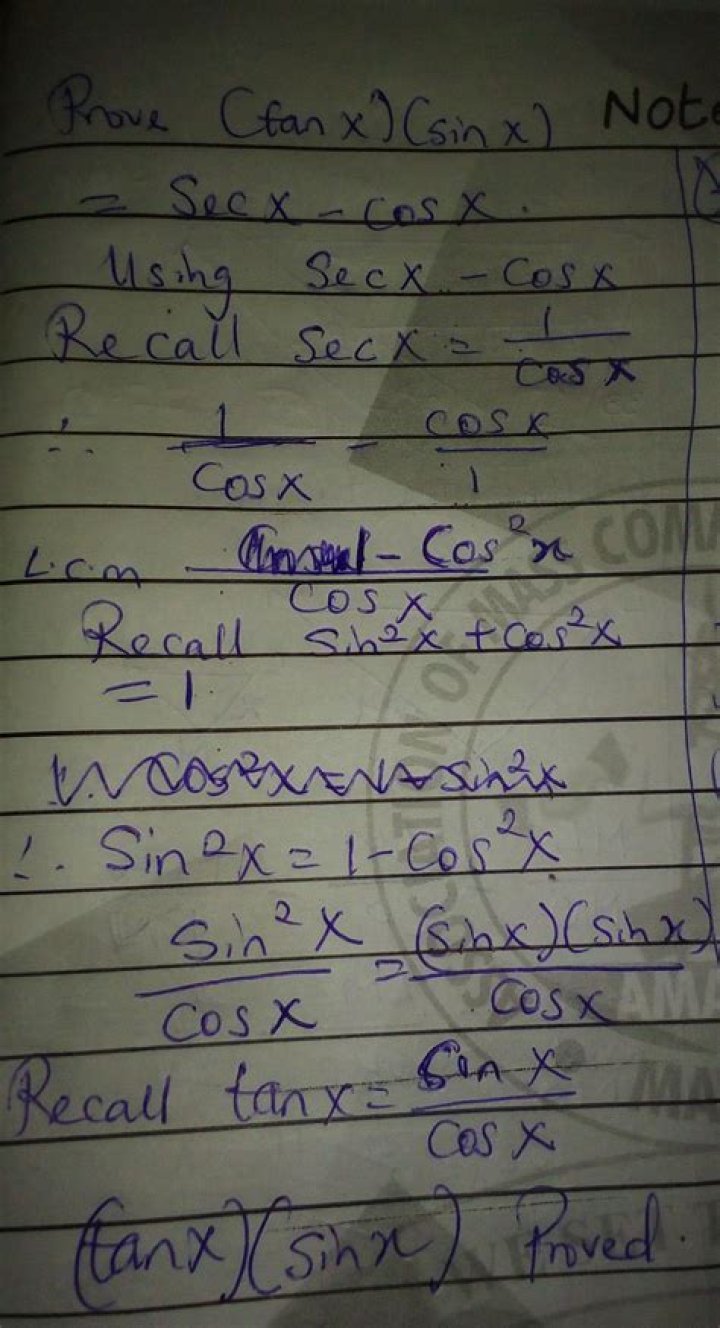 Prove (tan x)(sin x) Note
= Sec x - cos x.
Using Sec x - cos x
Recall Sec x = 1
cos x
∴ 1 - cos x
cos x 1
L.c.m - Cos²x
cos x
Recall Sin²x + cos²x
= 1.
Cos²x = 1 - Sin²x
∴ Sin²x = 1 - Cos²x
Sin²x = (sin x)(sin x)
cos x cos x
Recall tan x = Sin x
cos x
(tan x)(sin x) Proved.